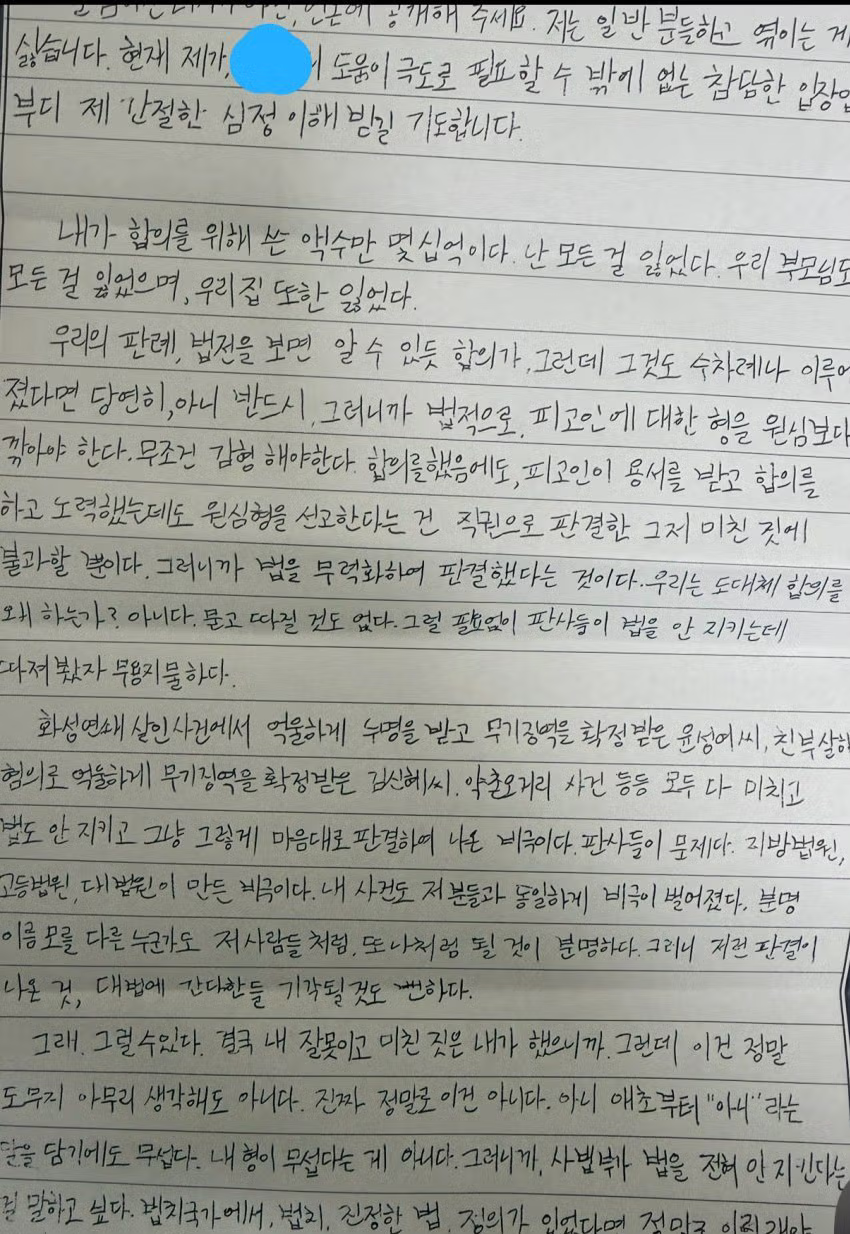 공개해 주세요. 저는 일반 분들하고 엮이는 게
싫습니다. 현재 제가, 도움이 극도로 필요할 수 밖에 없는 참담한 입장입
부디 제 간절한 심정 이해 빌길 기도합니다.
내가 합의를 위해 쓴 액수만 몇십억이다. 난 모든 걸 잃었다. 우리 부모님도
모든 걸 잃었으며, 우리집 또한 잃었다.
우리의 판례, 법전을 보면 알 수 있듯 합의가, 그런데 그것도 수차례나 이루어
졌다면 당연히, 아니 반드시, 그러니까 법적으로, 피고인에 대한 형을 원심보다
깎아야 한다. 무조건 감형 해야한다. 합의를했음에도, 피고인이 용서를 받고 합의를
하고 노력했는데도 원심형을 선고한다는 건 직권으로 판결한 그저 미친 짓에
불과할 뿐이다. 그러니까 법을 무력화하여 판결했다는 것이다. 우리는 도대체 합의를
왜 하는가? 아니다. 묻고 따질 것도 없다. 그럴 필요없이 판사들이 법을 안 지키는데
따져봤자 무용지물하다.
화성연쇄 살인사건에서 억울하게 누명을 받고 무기징역을 확정받은 윤성여씨, 친부살해
혐의로 억울하게 무기징역을 확정받은 김신혜씨, 약촌오거리 사건 등등 모두 다 미치고
법도 안 지키고 그냥 그렇게 마음대로 판결하여 나온 비극이다. 판사들이 문제다. 지방법원,
고등법원, 대법원이 만든 비극이다. 내 사건도 저 분들과 동일하게 비극이 벌어졌다. 분명
이름 모를 다른 누군가도 저 사람들처럼, 또 나처럼 될 것이 분명하다. 그러니 저런 판결이
나온 것, 대법에 간다한들 기각될것도 뻔하다.
그래. 그럴수있다. 결국 내 잘못이고 미친 짓은 내가 했으니까. 그런데 이건 정말
도무지 아무리 생각해도 아니다. 진짜 정말로 이건 아니다. 아니 애초부터 "아니"라는
말을 담기에도 무섭다. 내 형이 무섭다는 게 아니다. 그러니까, 사법부가 법을 전혀 안 지킨다는
걸 말하고 싶다. 법치국가에서, 법치, 진정한 법, 정의가 있었다면 정말로